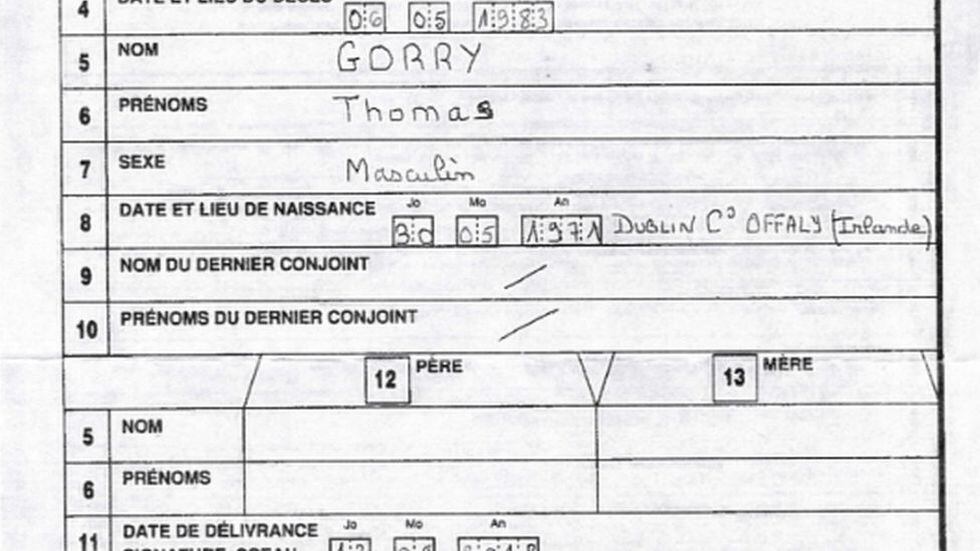 4
06 05 1983
5 NOM GORRY
6 PRÉNOMS Thomas
7 SEXE Masculin
Jo Mo An
8 DATE ET LIEU DE NAISSANCE 30 05 1971 DUBLIN C° OFFALY (Irlande)
9 NOM DU DERNIER CONJOINT /
10 PRÉNOMS DU DERNIER CONJOINT /
12 PÈRE 13 MÈRE
5 NOM
6 PRÉNOMS
Jo Mo An
11 DATE DE DÉLIVRANCE